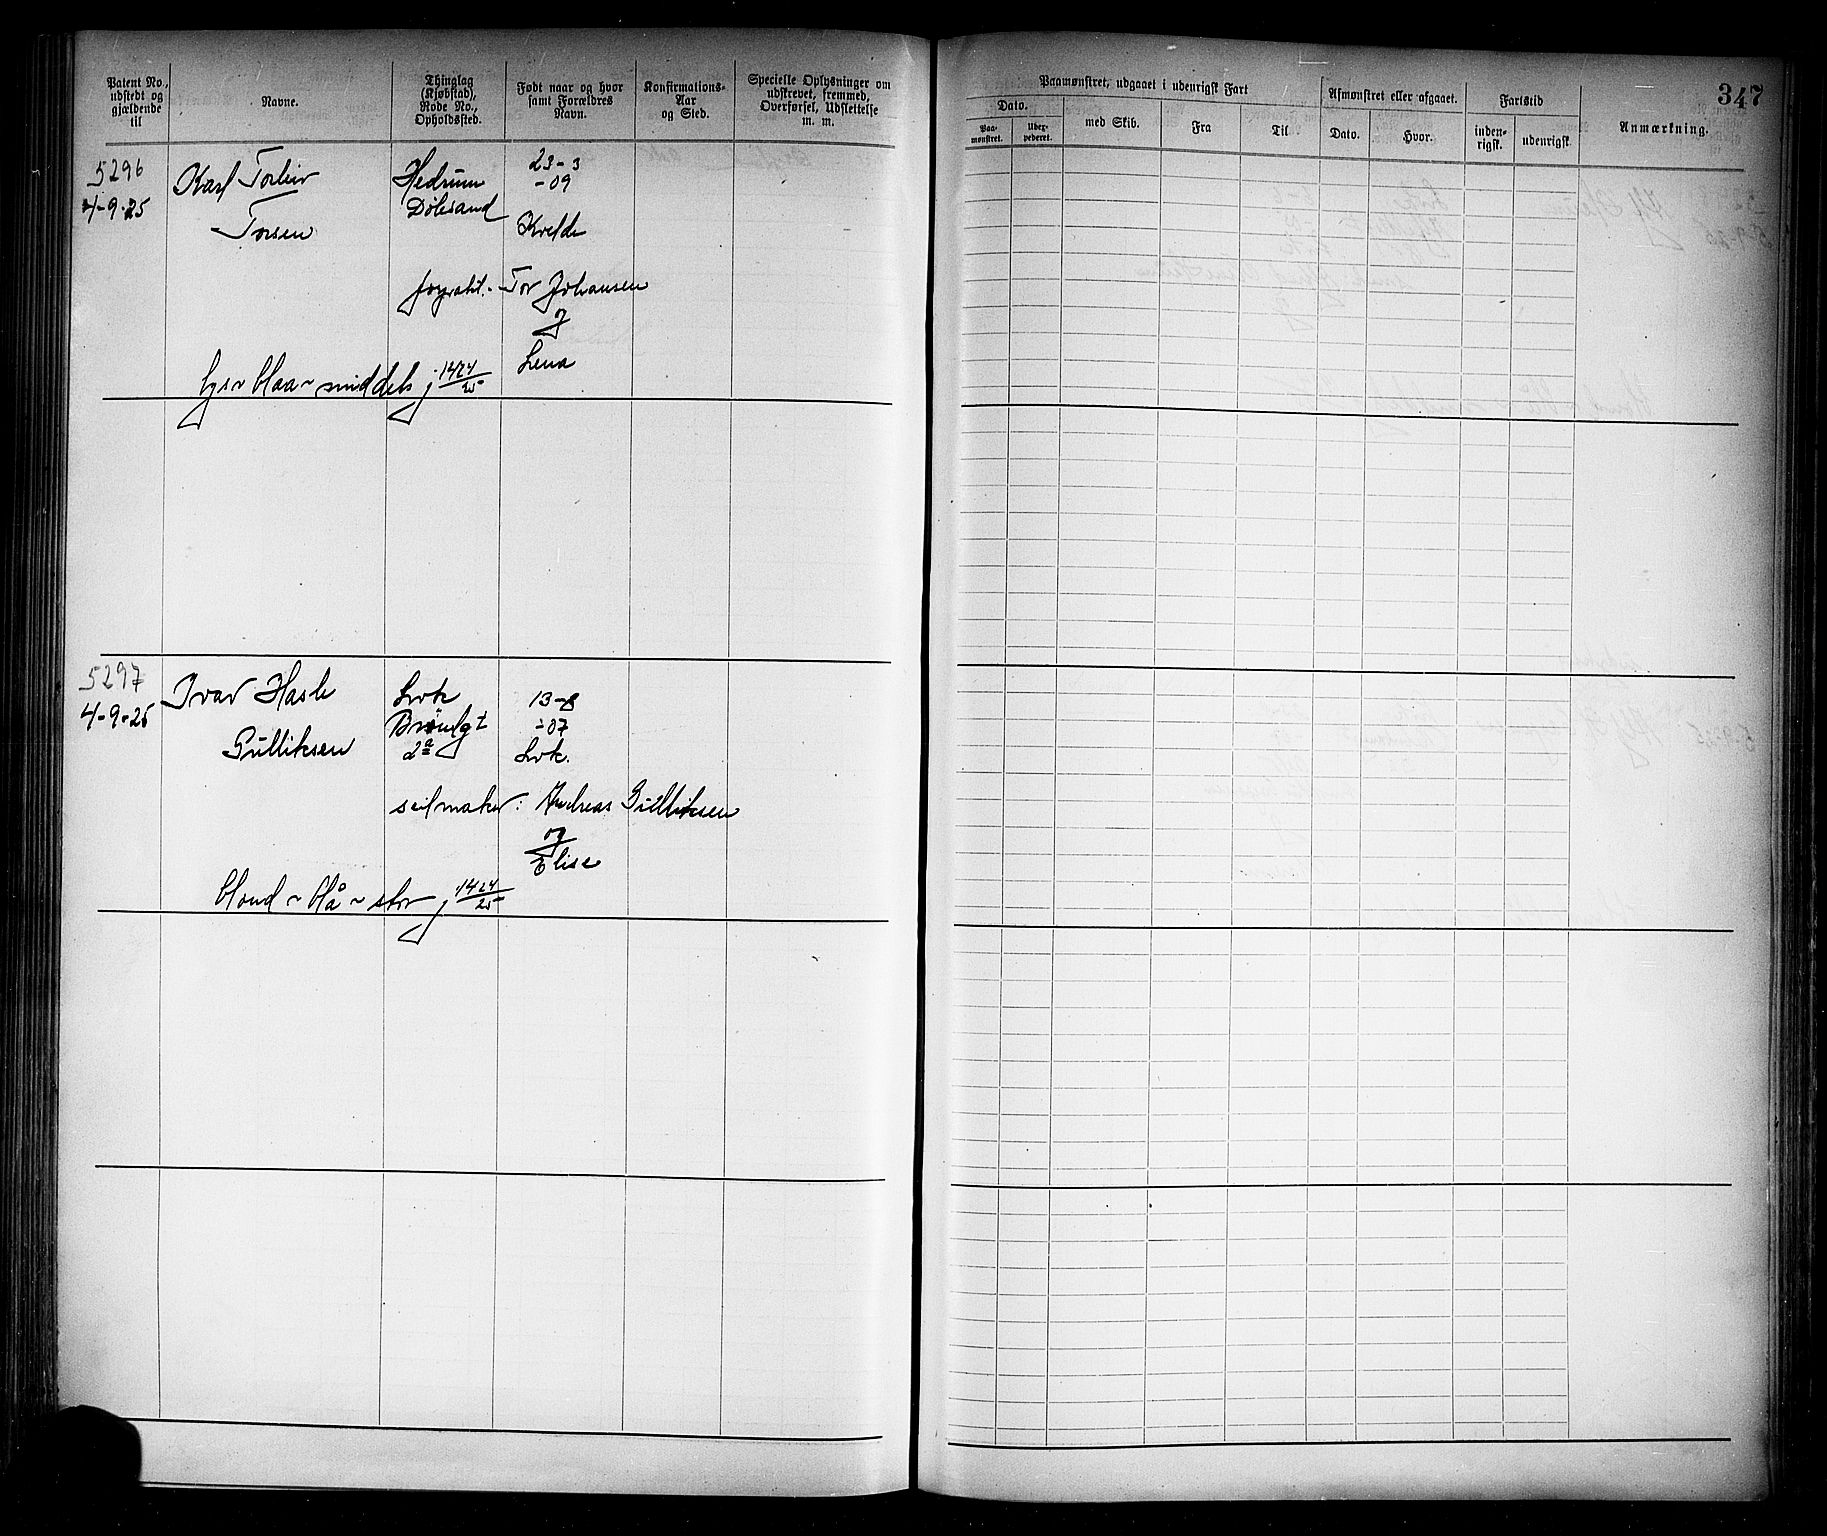 Patent No.,
udstedt og
gjældende
til
Navne.
Thinglag
(Kjøbstad),
Rode No.,
Opholdssted.
Født naar og hvor
samt Forældres
Navn.
Konfirmations-
Aar
og Sted.
Specielle Oplysninger om
udskrevet, fremmed,
Overførsel, Udslettelse
m. m.
5296
4-9-25
Karl Torleiv
Torsen
Hedrum
23-3
-09
Kvelde
Tor Johansen
og
Lena
lys ~ blaa ~ middels
5297
4-9-25
Ivar Hasle
Gulliksen
Lvk
2a
13-8
-07
Lvk.
seilmaker: Andreas Gulliksen
og
Elise
blond ~ blå ~ stor
347
Paamønstret, udgaaet i udenrigsk Fart
Afmønstret eller afgaaet.
Fartstid
Anmærkning.
Dato.
Paa-
mønstret.
Udex-
pederet.
med Skib.
Fra
Til
Dato.
Hvor.
inden-
rigsk.
udenrigsk.